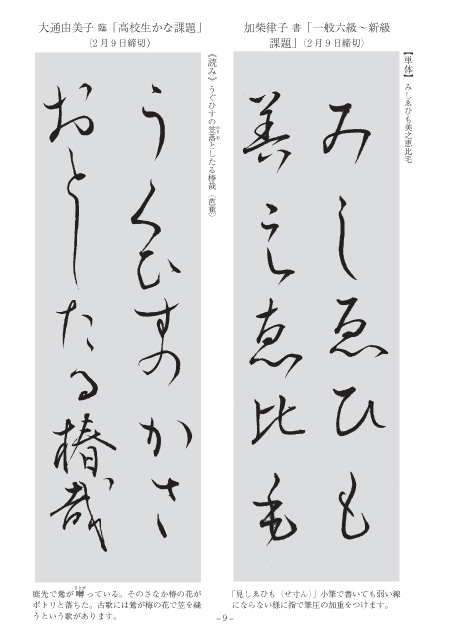 加柴律子 書「一般六級～新級
課題」（2月9日締切）
【単体】みしゑひも美之恵比毛
みしゑひも
美之恵比毛
「見しゑひも〈せすん〉」小筆で書いても弱い線
にならない様に指で筆圧の加重をつけます。
大通由美子 臨「高校生かな課題」
（2月9日締切）
《読み》うぐひすの笠落としたる椿哉（芭蕉）
うくひすのかさ
おとしたる椿哉
庭先で鶯が囀っている。そのさなか椿の花が
ポトリと落ちた。古歌には鶯が梅の花で笠を縫
うという歌があります。
- 9 -